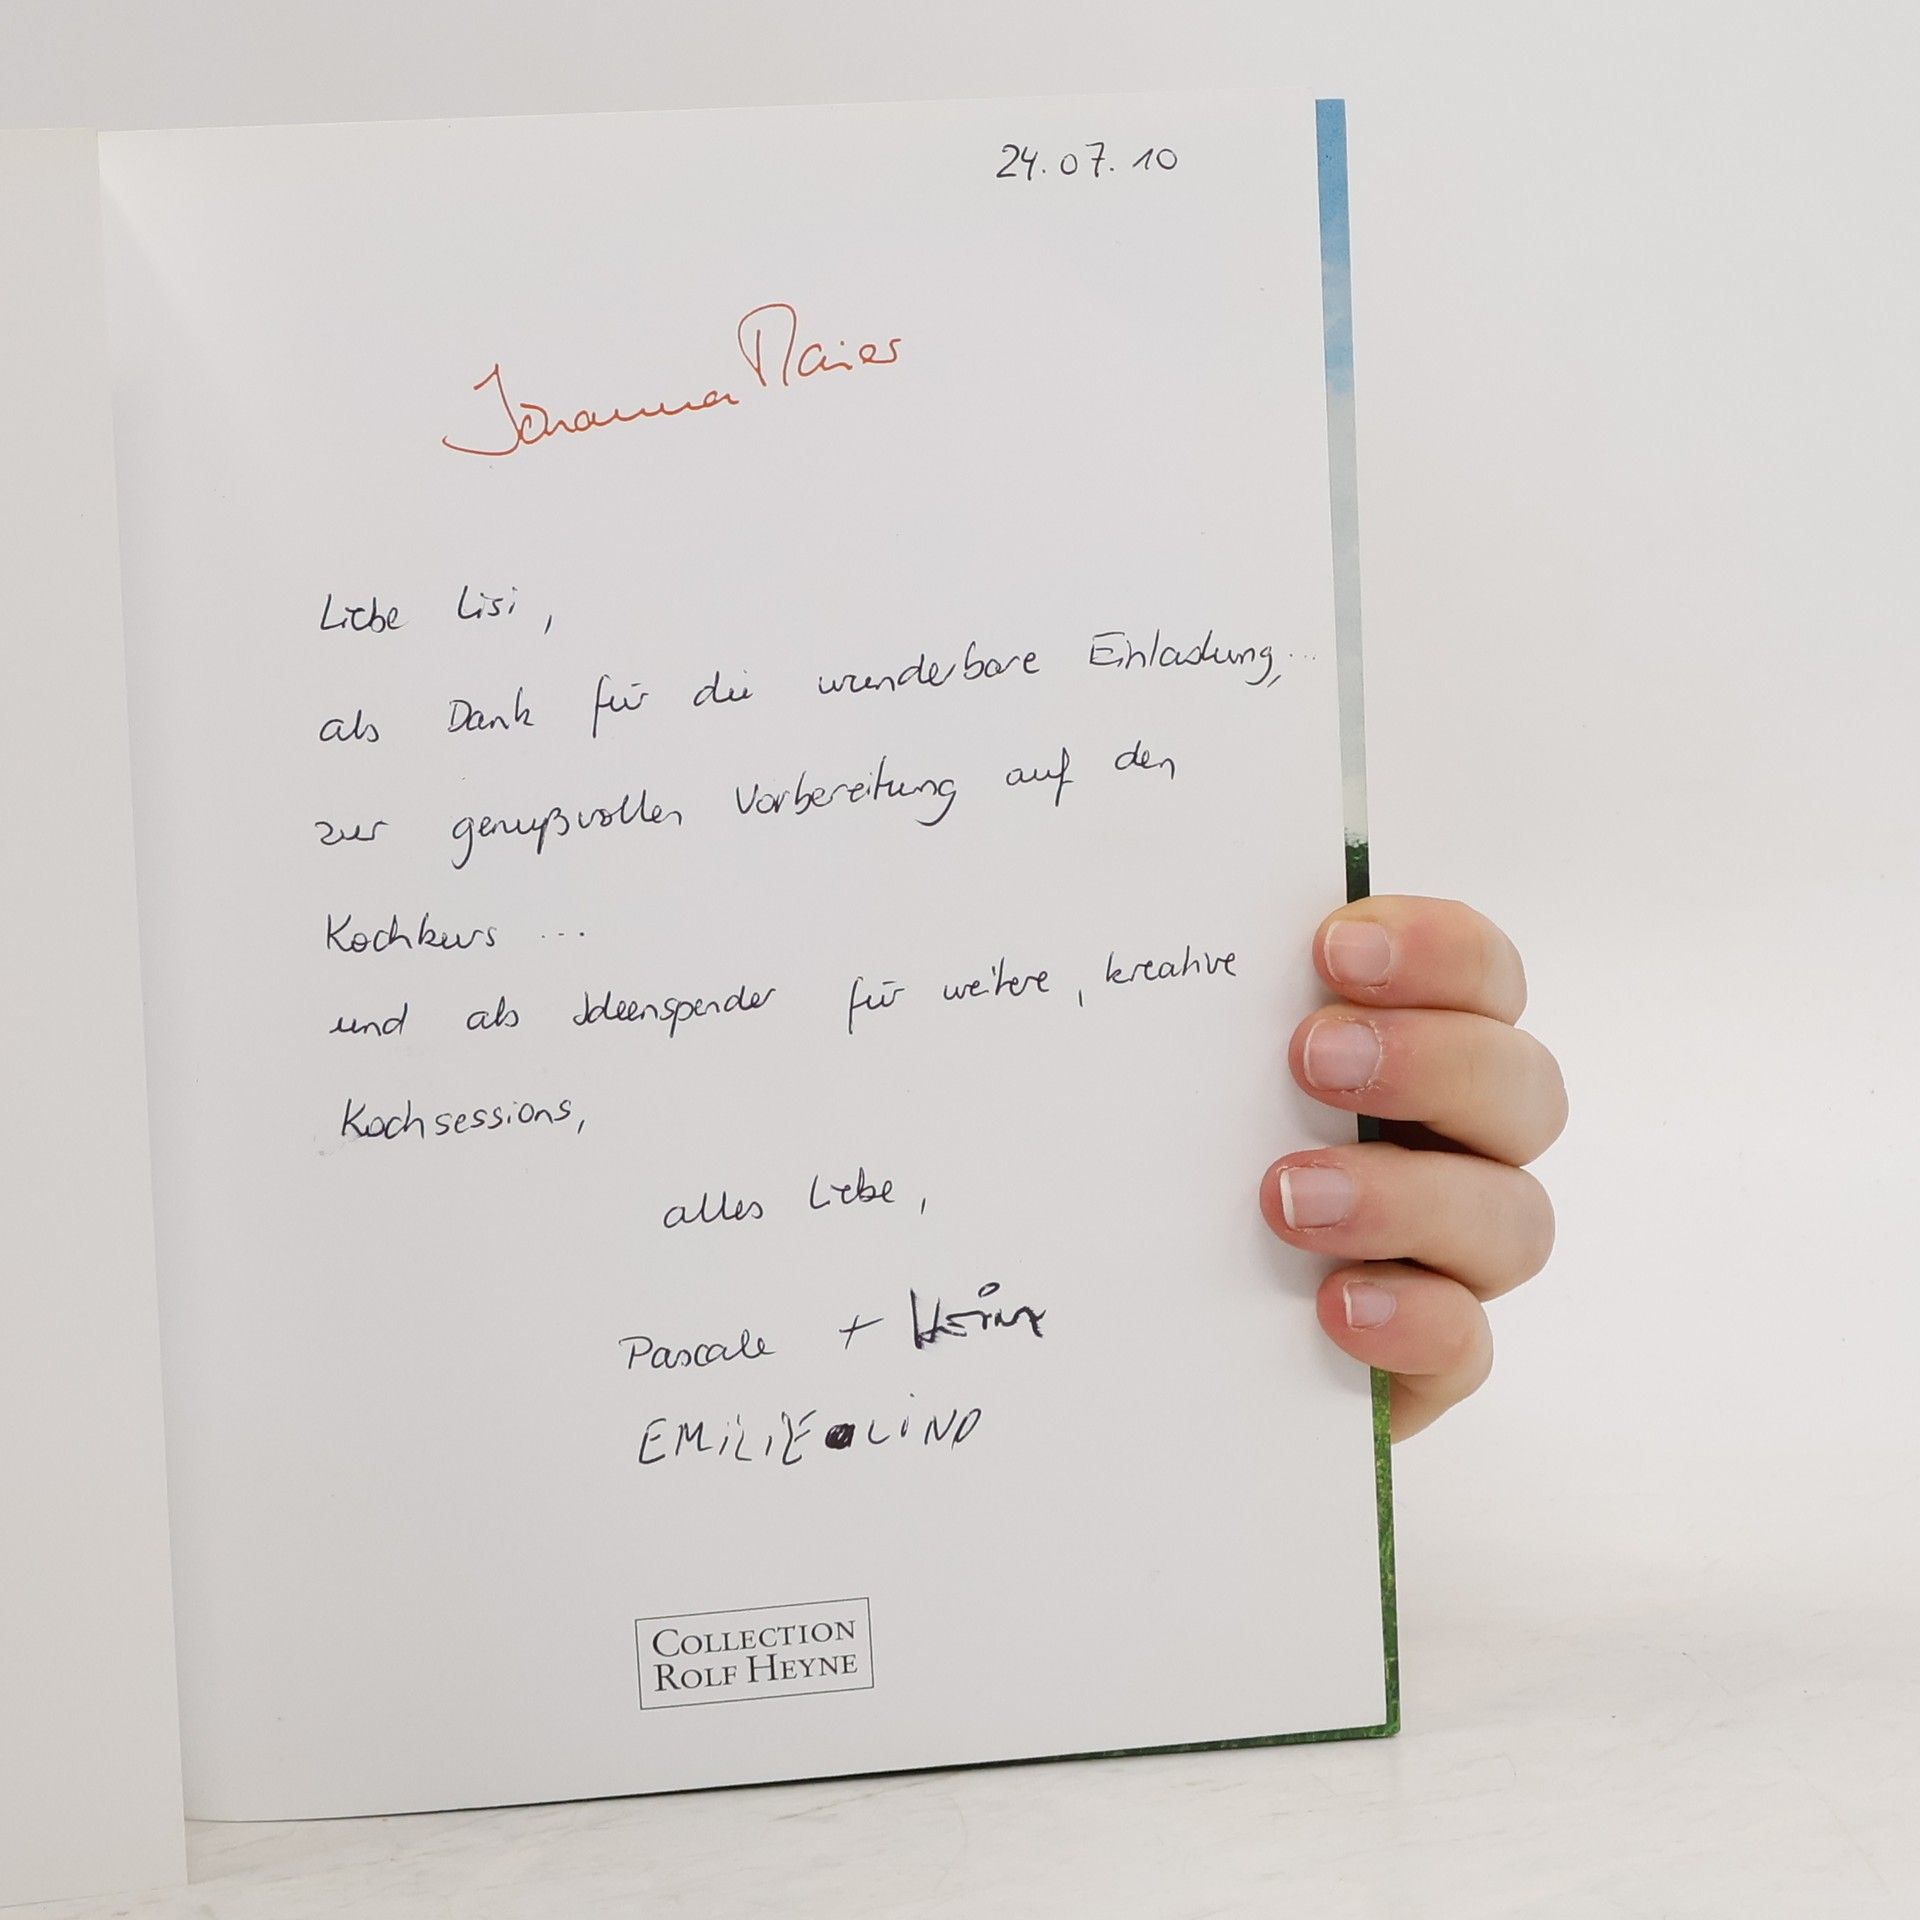 24.07.10
Johanna Maier
Liebe Lisi,
als Dank für die wunderbare Einladung,...
zur genußvollen Vorbereitung auf den
Kochkurs ...
und als Ideenspender für weitere, kreative
Kochsessions,
alles Liebe,
Pascale + Heinz
EMILIE LINO
COLLECTION
ROLF HEYNE